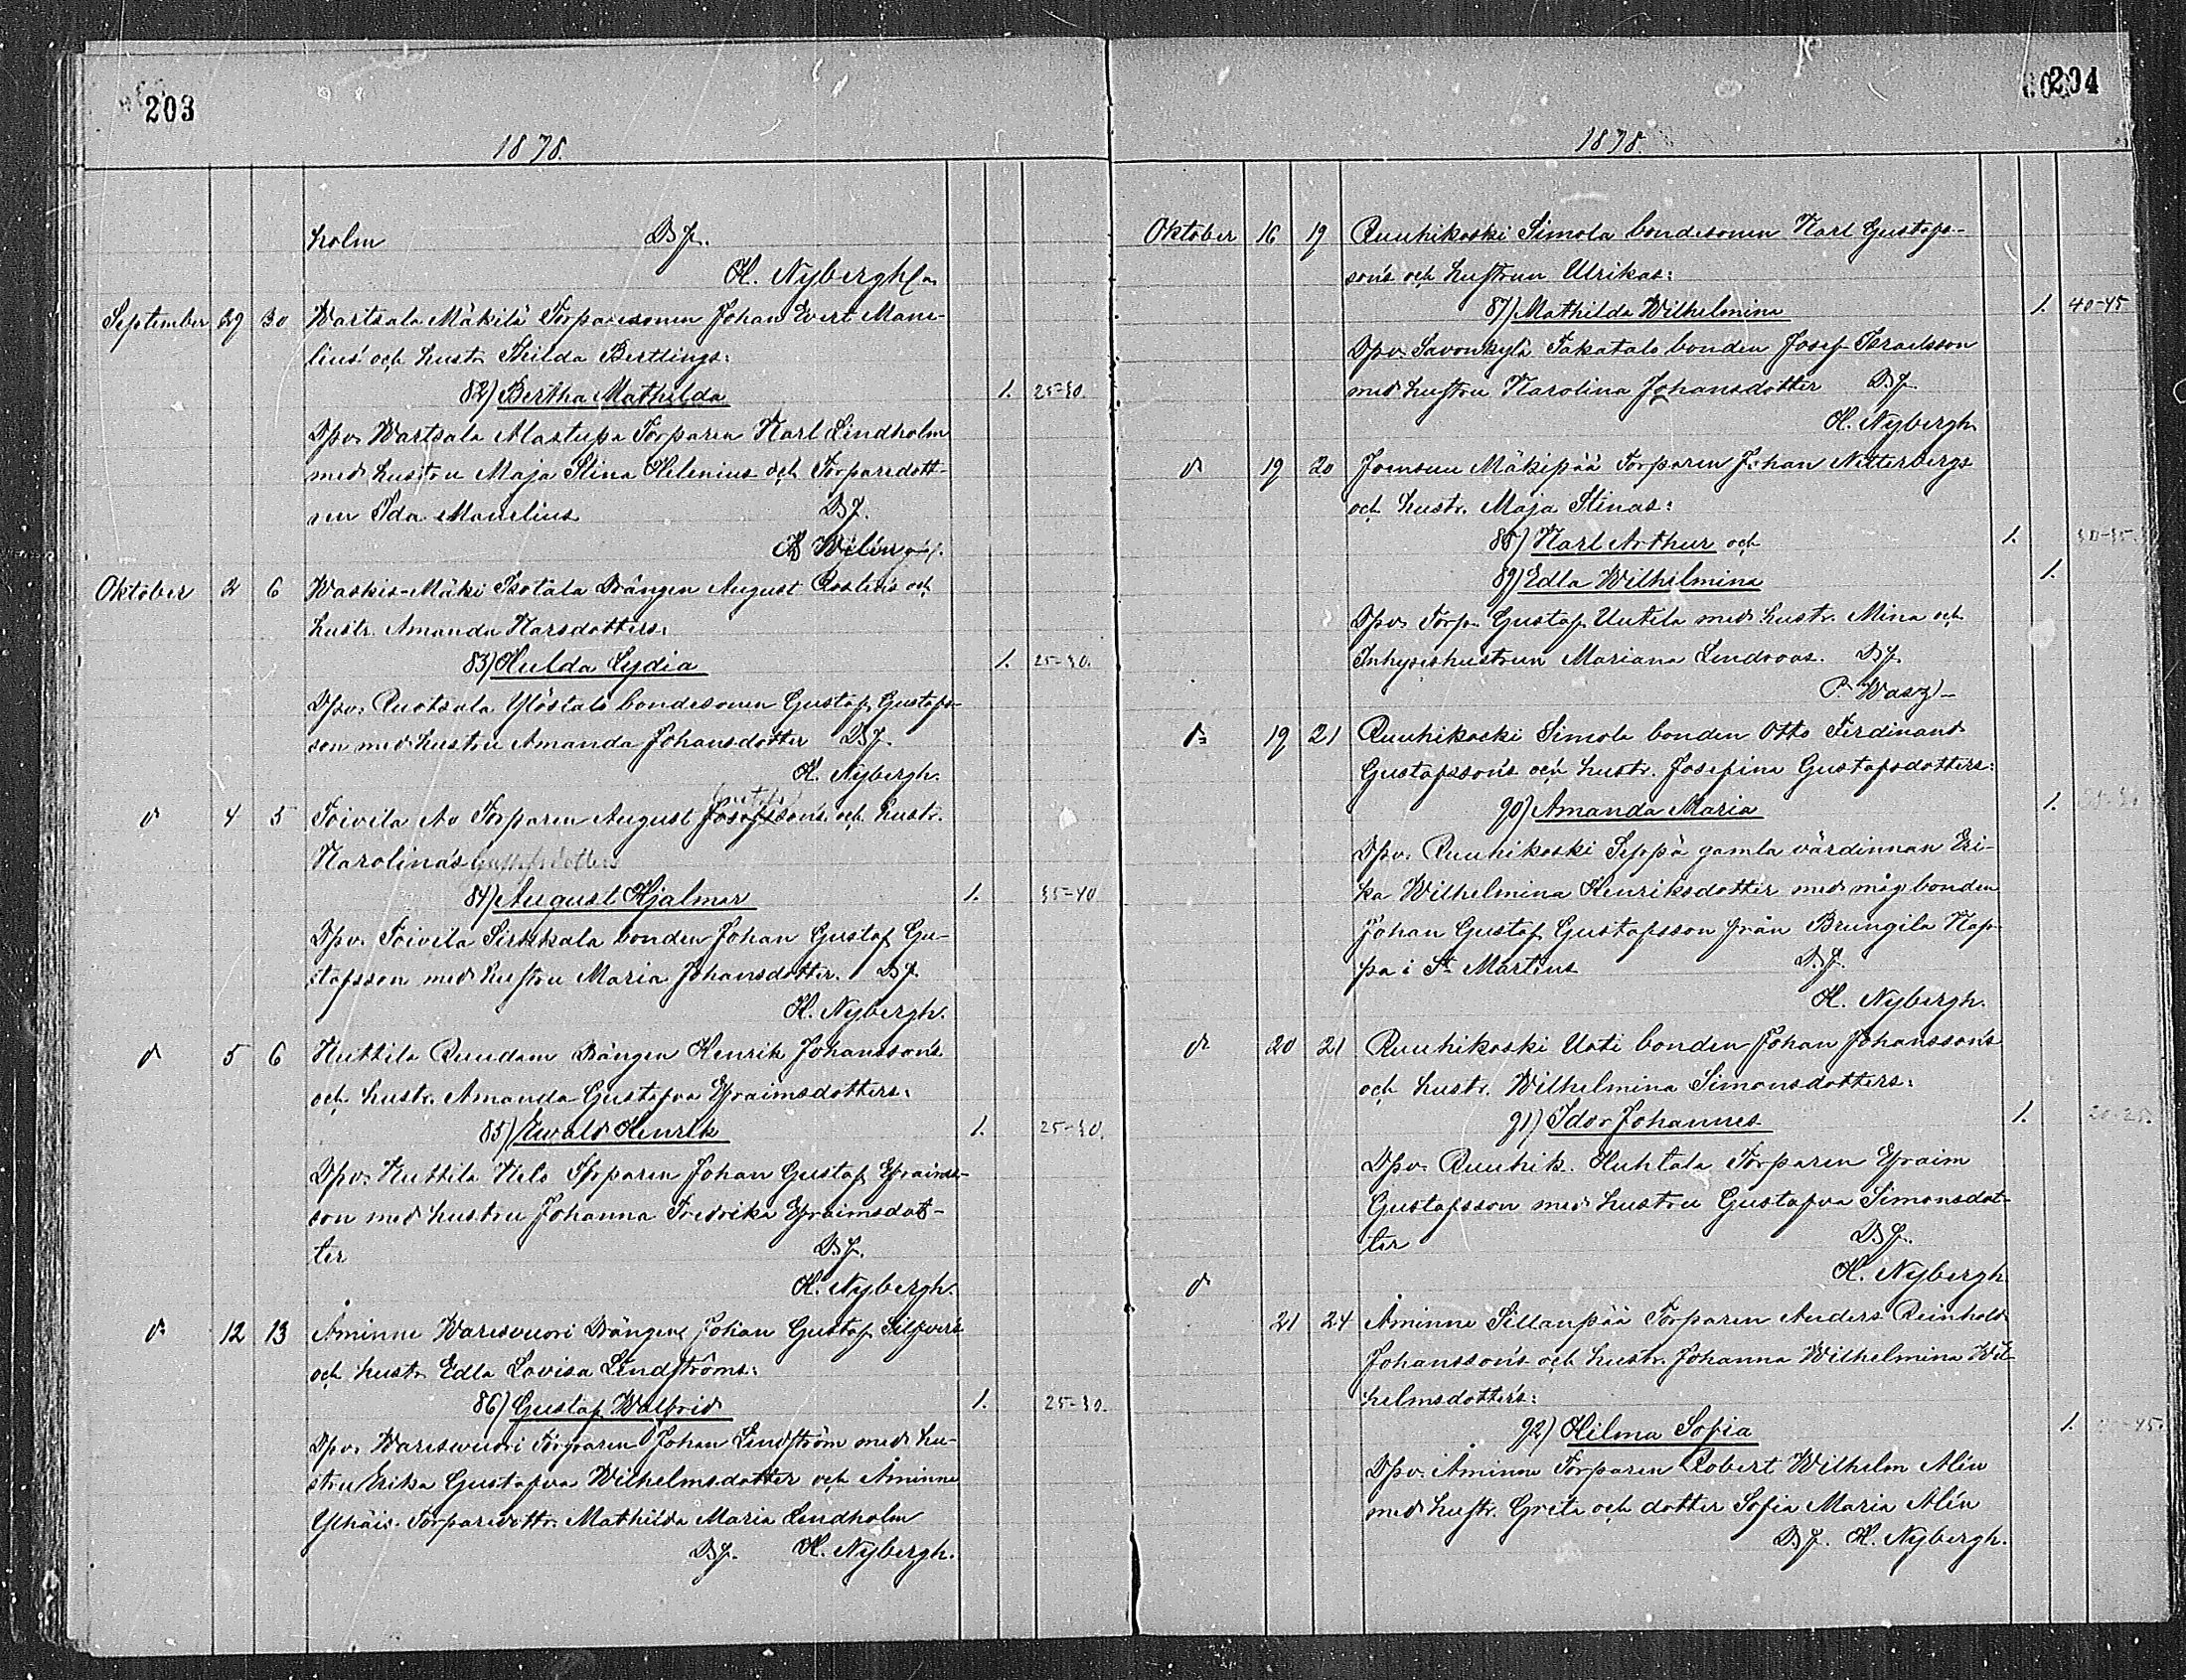 203
1878.
holm D. f.
H. Nybergh
September 29 30 Wartsala Mäkilä Torparesonen Johan Evert Mane-
lius' och hustr. Hilda Bertlings:
82) Bertha Mathilda 1. 25-30.
Dpv. Wartsala Alastupa Torparen Karl Lindholm
med hustru Maja Stina Helenius och Torparedott-
ren Ida Manelius D. f.
Oktober 2 6 Waskis-Mäki Isotalo Drängen August Roslins och
hustr. Amanda Karsdotters:
83) Hulda Lydia 1. 25-30.
Dpv. Ruotsala Ylöstalo bondesonen Gustaf Gustafs-
son med hustru Amanda Johansdotter D. f.
H. Nybergh.
d:o 4 5 Toivila Av Torparen August Josefsson's och hustr.
Karolina's Gustafsdotters
84) August Hjalmar 1. 35-40
Dpv. Toivila Sirkkala bonden Johan Gustaf Gu-
stafsson med hustru Maria Johansdotter. D. f.
H. Nybergh.
d:o 5 6 Huttila Ruudam Drängen Henrik Johansson's
och hustr. Amanda Gustafva Efraimsdotters:
85) Ewald Henrik 1. 25-30.
Dpv. Huttila Kelo Torparen Johan Gustaf Efraims-
son med hustru Johanna Fredrika Efraimsdot-
ter D. f.
H. Nybergh.
d:o 12 13 Åminne Waresvuori Drängen Johan Gustaf Silfvers
och hustr. Edla Lovisa Lindströms:
86) Gustaf Walfrid 1. 25-30.
Dpv. Waresvuori Torparen Johan Lindström med hu-
stru Erika Gustafva Wilhelmsdotter och Åminne
Ylhäis Torparedottr. Mathilda Maria Lindholm
D. f. H. Nybergh.
204
1878.
Oktober 16 19 Ruuhikoski Simola bondesonen Karl Gustafs-
sons och hustrun Ulrikas:
87) Mathilda Wilhelmina 1. 40-45
Dpv. Savonkylä Takatalo bonden Josef Israelsson
med hustru Karolina Johansdotter D. f.
H. Nybergh.
d:o 19 20 Joensuu Mäkipää Torparen Johan Netterbergs
och hustr. Maja Stinas:
88) Karl Arthur och 1. 30-35.
89) Edla Wilhelmina 1.
Dpv. Torp. Gustaf Uutela med hustr. Mina och
Inhyseshustrun Mariana Lindroos. D. f.
d:o 19 21 Ruuhikoski Simola bonden Otto Ferdinand
Gustafsson's och hustr. Josefina Gustafsdotters:
90) Amanda Maria 1.
Dpv. Ruuhikoski Seppä gamla värdinnan Eri-
ka Wilhelmina Henriksdotter med måg bonden
Johan Gustaf Gustafsson från Brungila Kap-
pa i St Martins D. f.
H. Nybergh.
d:o 20 21 Ruuhikoski Uoti bonden Johan Johansson's
och hustr. Wilhelmina Simonsdotters:
91) Idor Johannes 1. 20-25.
Dpv. Ruuhik. Huhtala Torparen Efraim
Gustafsson med hustru Gustafva Simonsdot-
ter D. f.
H. Nybergh
d:o
21 24 Åminne Sillanpää Torparen Anders Reinhold
Johansson's och hustr. Johanna Wilhelmina Wil-
helmsdotters:
92) Hilma Sofia 1.
Dpv. Åminne Torparen Robert Wilhelm Alén
med hustr. Greta och dotter Sofia Maria Alén
D. f. H. Nybergh.